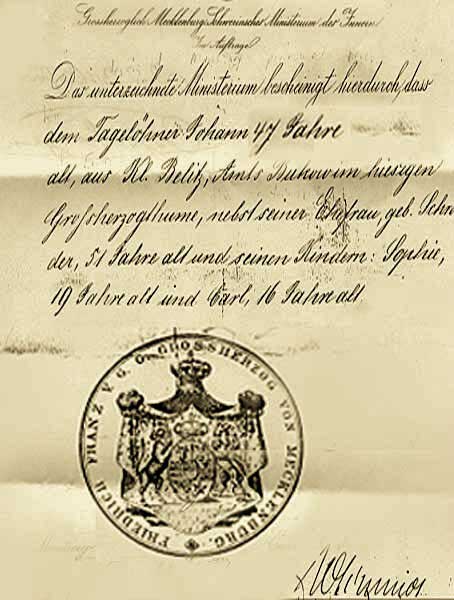 Grossherzoglich Mecklenburg-Schwerinsches Ministerium des Innern
Im Auftrage
Das unterzeichnete Ministerium bescheinigt hierdurch, dass
dem Tagelöhner Johann 47 Jahre
alt, aus Kl. Belitz, Amts Bukow im hiesigen
Großherzogthume, nebst seiner Ehefrau, geb. Schrö
der, 51 Jahre alt und seinen Kindern: Sophie,
19 Jahre alt und Carl, 16 Jahre alt
FRIEDRICH FRANZ V. G. G. GROSSHERZOG VON MECKLENBURG.